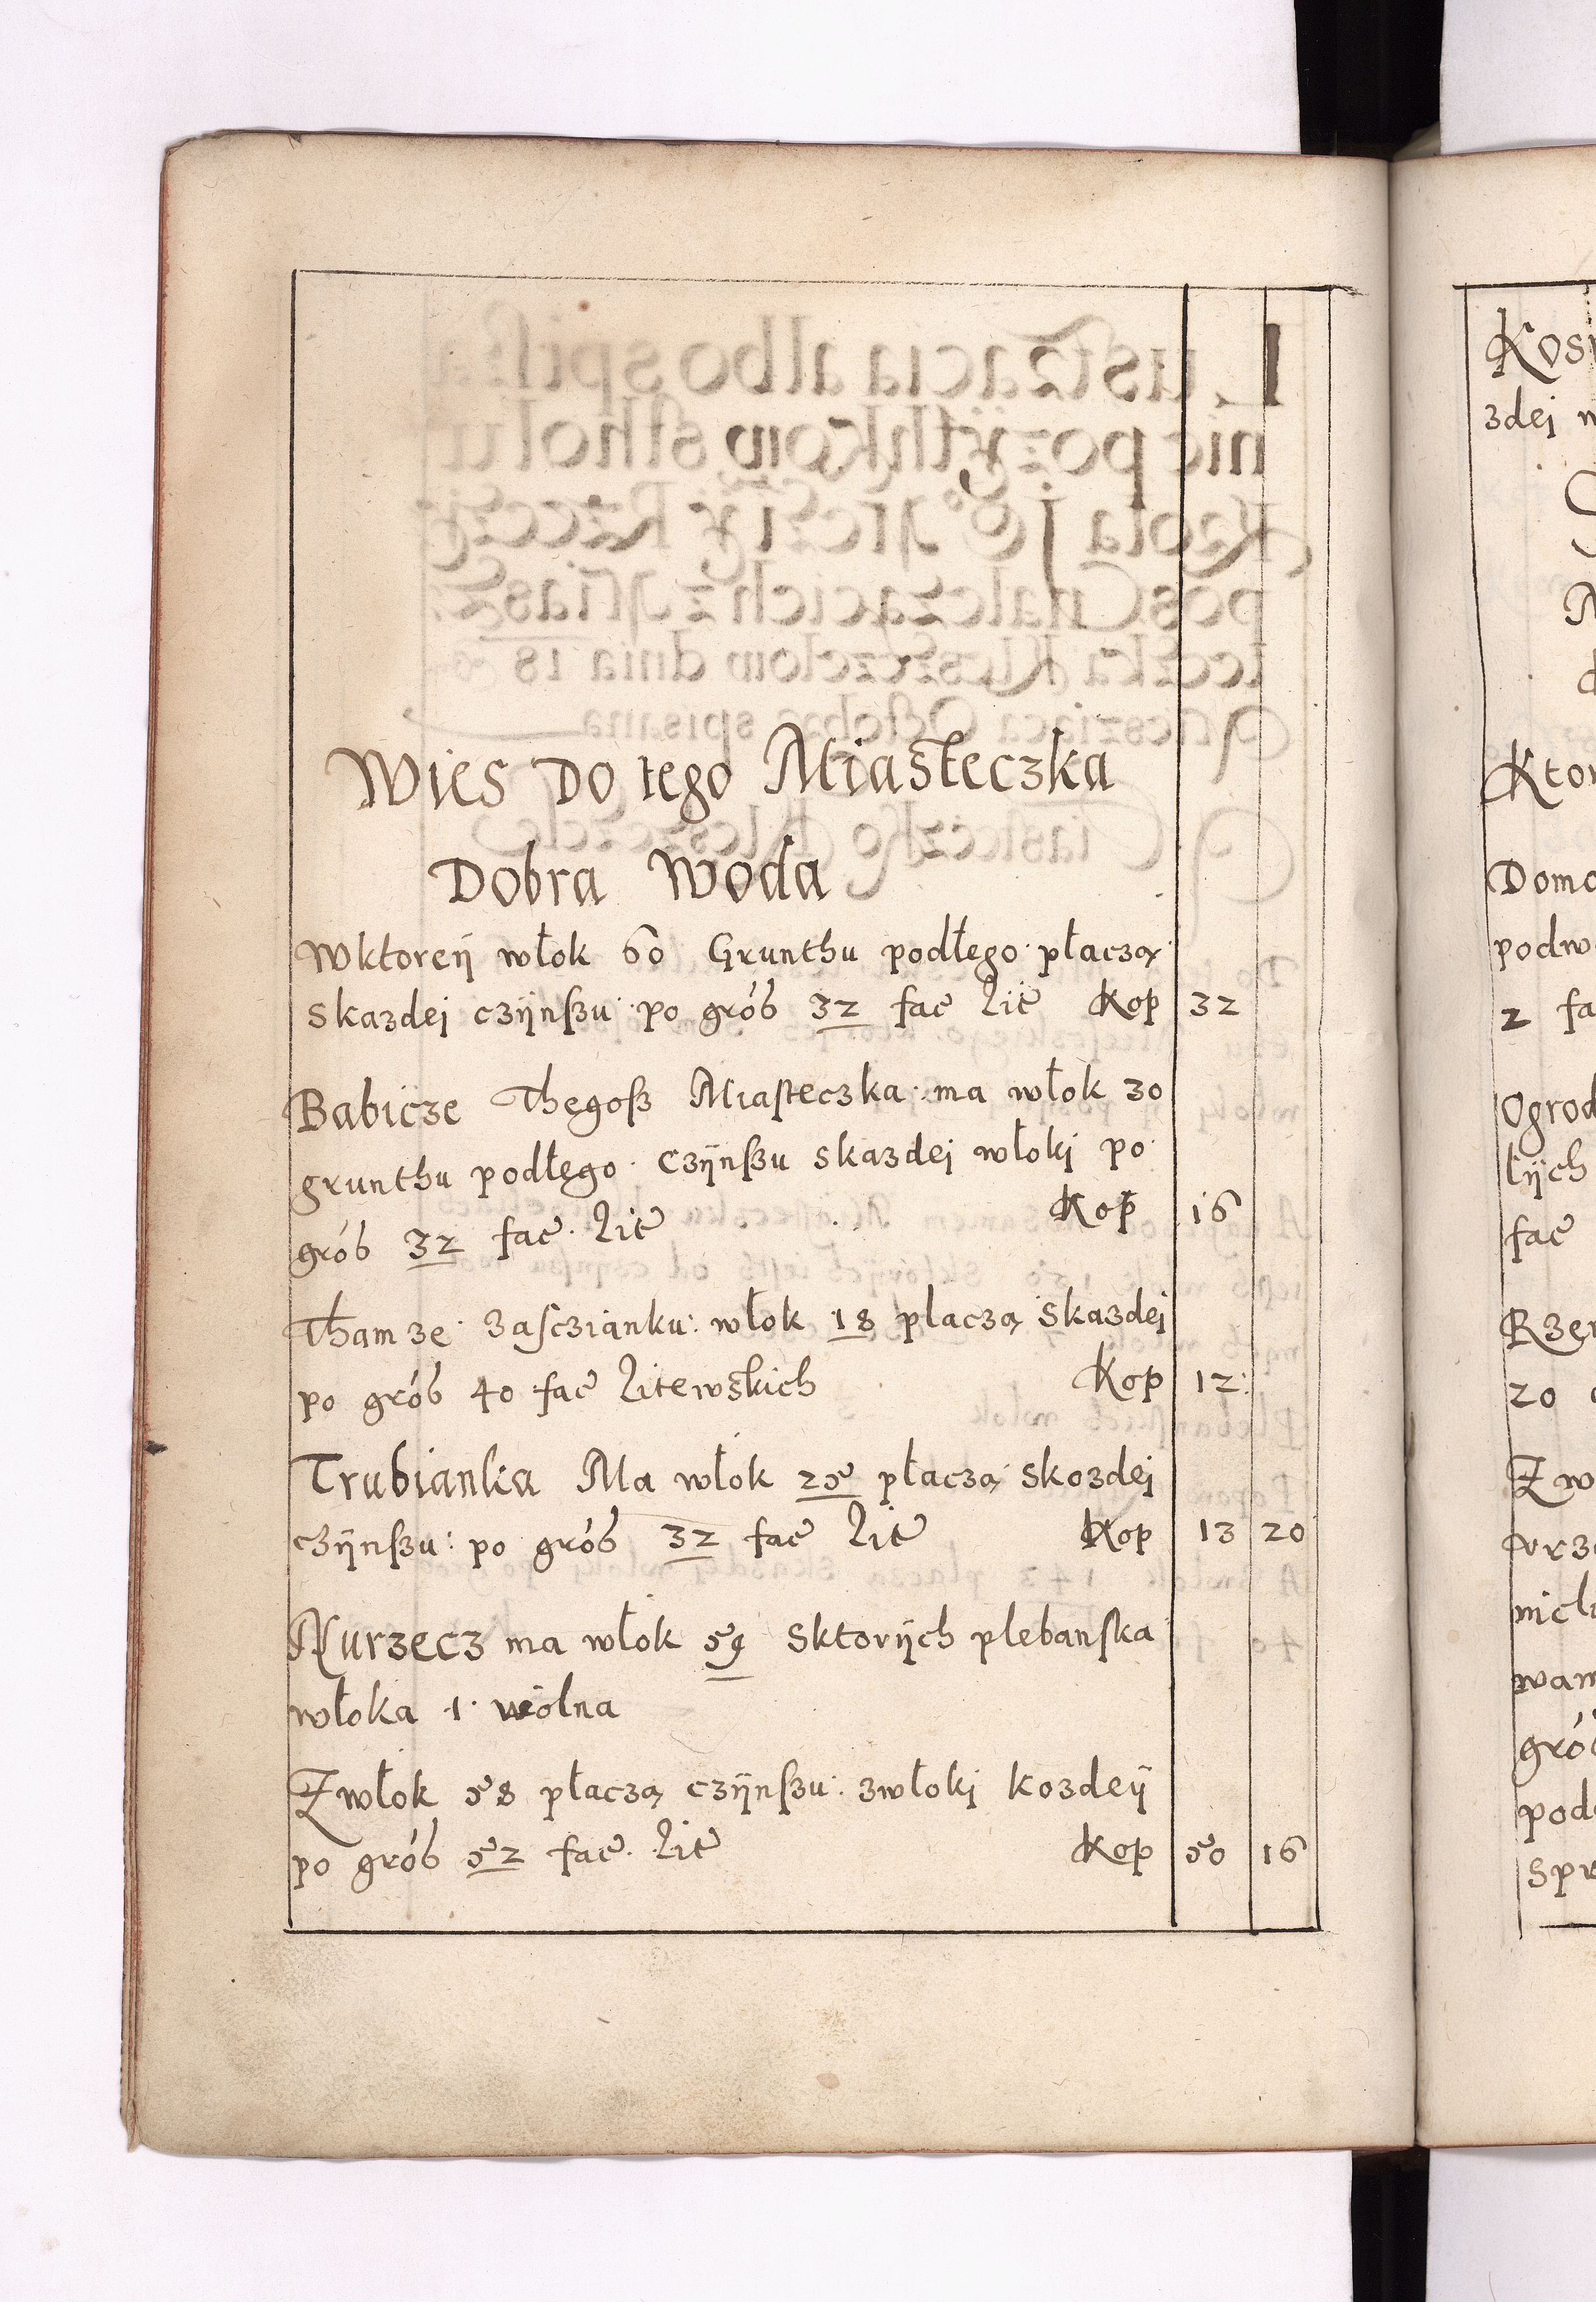 Wies Do tego Miasteczka
Dobra Woda
Wktoreÿ włok 60 Grunthu podłego płaczą
skazdej czÿnszu po gros 32 fac Lit Kop 32
Babicze Thegosz Miasteczka ma włok 30
grunthu podłego czÿnszu skazdej włoki po
gros 32 fac Lit Kop 16
Tham ze zasczianku włok 18 placzą skazdej
po gros 40 fac Litewskich Kop 12
Trubianka Ma włok 25 płaczą skozdej
czÿnszu po gros 32 fac Lit Kop 13 20
Nurzecz ma włok 59 sktorÿch plebanska
włoka 1 wolna
Zwłok 58 płaczą czÿnszu zwłoki kozdeÿ
po gros 52 fac Lit Kop 50 16
zdej
Domo
podw
2 fa
Ogrod
lÿch
fac
20
Zw
nich
wam
pod